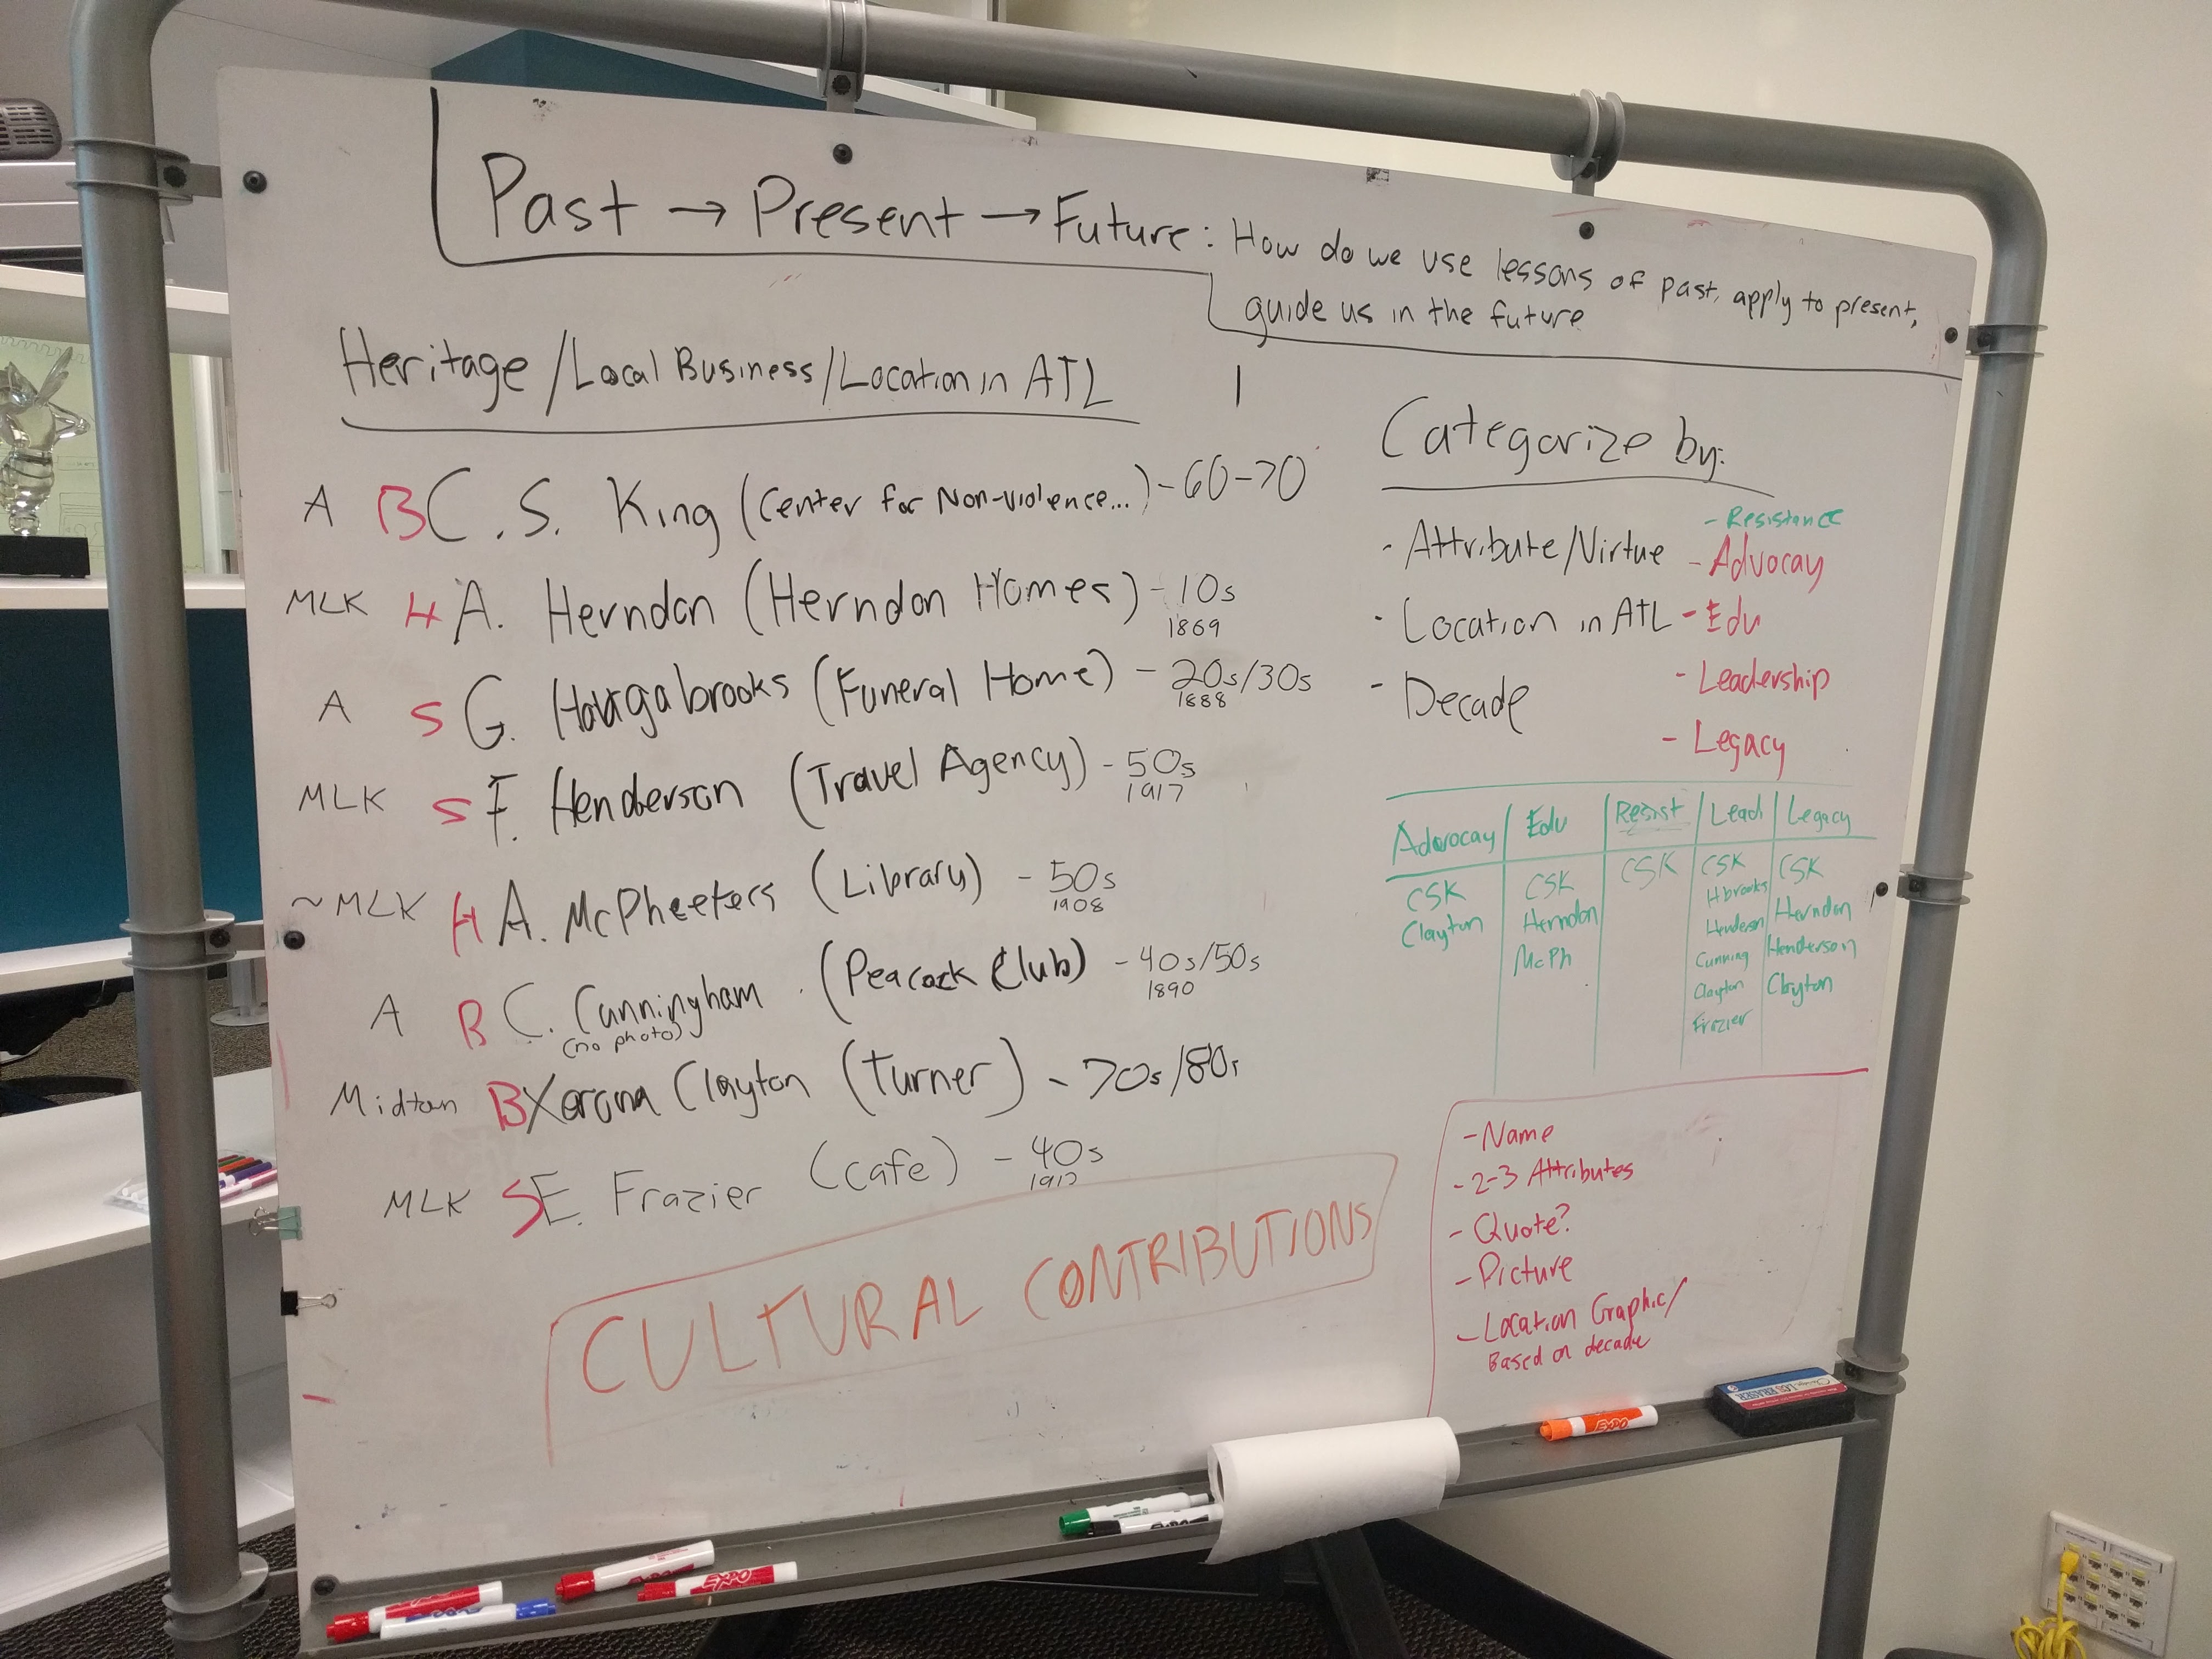 Past → Present → Future: How do we use lessons of past, apply to present,
guide us in the future
Heritage/Local Business/Location in ATL
A B C. S. King (Center for Non-violence...) - 60-70
MLK H A. Herndon (Herndon Homes) - 10s
1869
A S G. Haugabrooks (Funeral Home) - 20s/30s
1888
MLK S F. Henderson (Travel Agency) - 50s
1917
~MLK H A. McPheeters (Library) - 50s
1908
A B C. Cunningham (Peacock Club) - 40s/50s
(no photo) 1890
Midtown B Xerona Clayton (Turner) - 70s/80s
MLK S E. Frazier (cafe) - 40s
CULTURAL CONTRIBUTIONS
Categorize by:
- Attribute/Virtue
- Location in ATL
- Decade
- Resistance
- Advocay
- Edu
- Leadership
- Legacy
Advocay Edu Resist Lead Legacy
CSK CSK CSK CSK CSK
Clayton Herndon Hbrooks Herndon
McPh Henderson Henderson
Cunning Clayton
Clayton
Frazier
- Name
- 2-3 Attributes
- Quote?
- Picture
- Location Graphic/
Based on decade
EXPO
EXPO
EXPO
ERASER